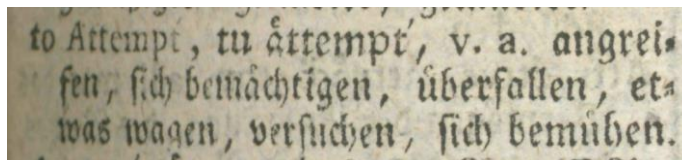 to Attempt, tu ättempt, v. a. angrei⸗
fen, ſich bemächtigen, überfallen, et⸗
was wagen, verſuchen, ſich bemühen.